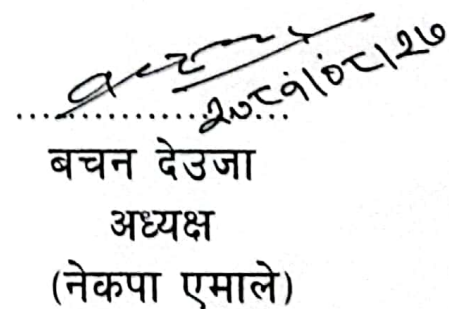 २०८१।०८।२७
....................
बचन देउजा
अध्यक्ष
(नेकपा एमाले)